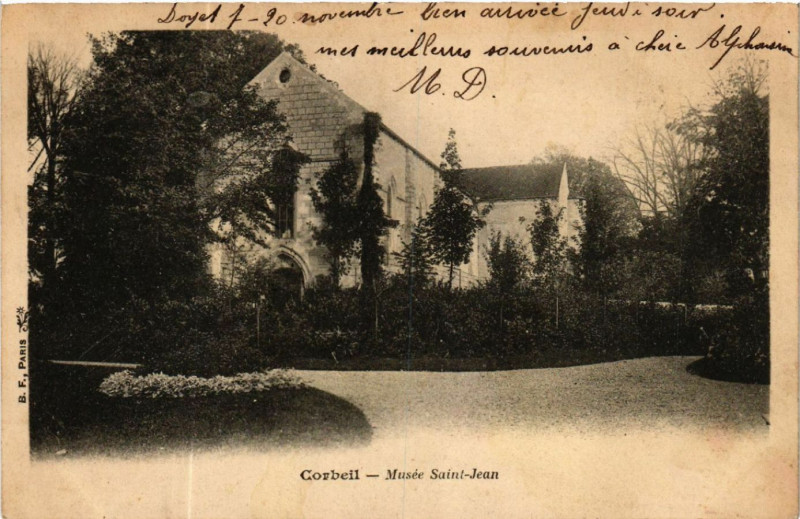 Doyet 7-20 novembre bien arrivée jeudi soir.
mes meilleurs souvenirs à chère Alphonsine
M. D.
B. F., PARIS
Corbeil — Musée Saint-Jean